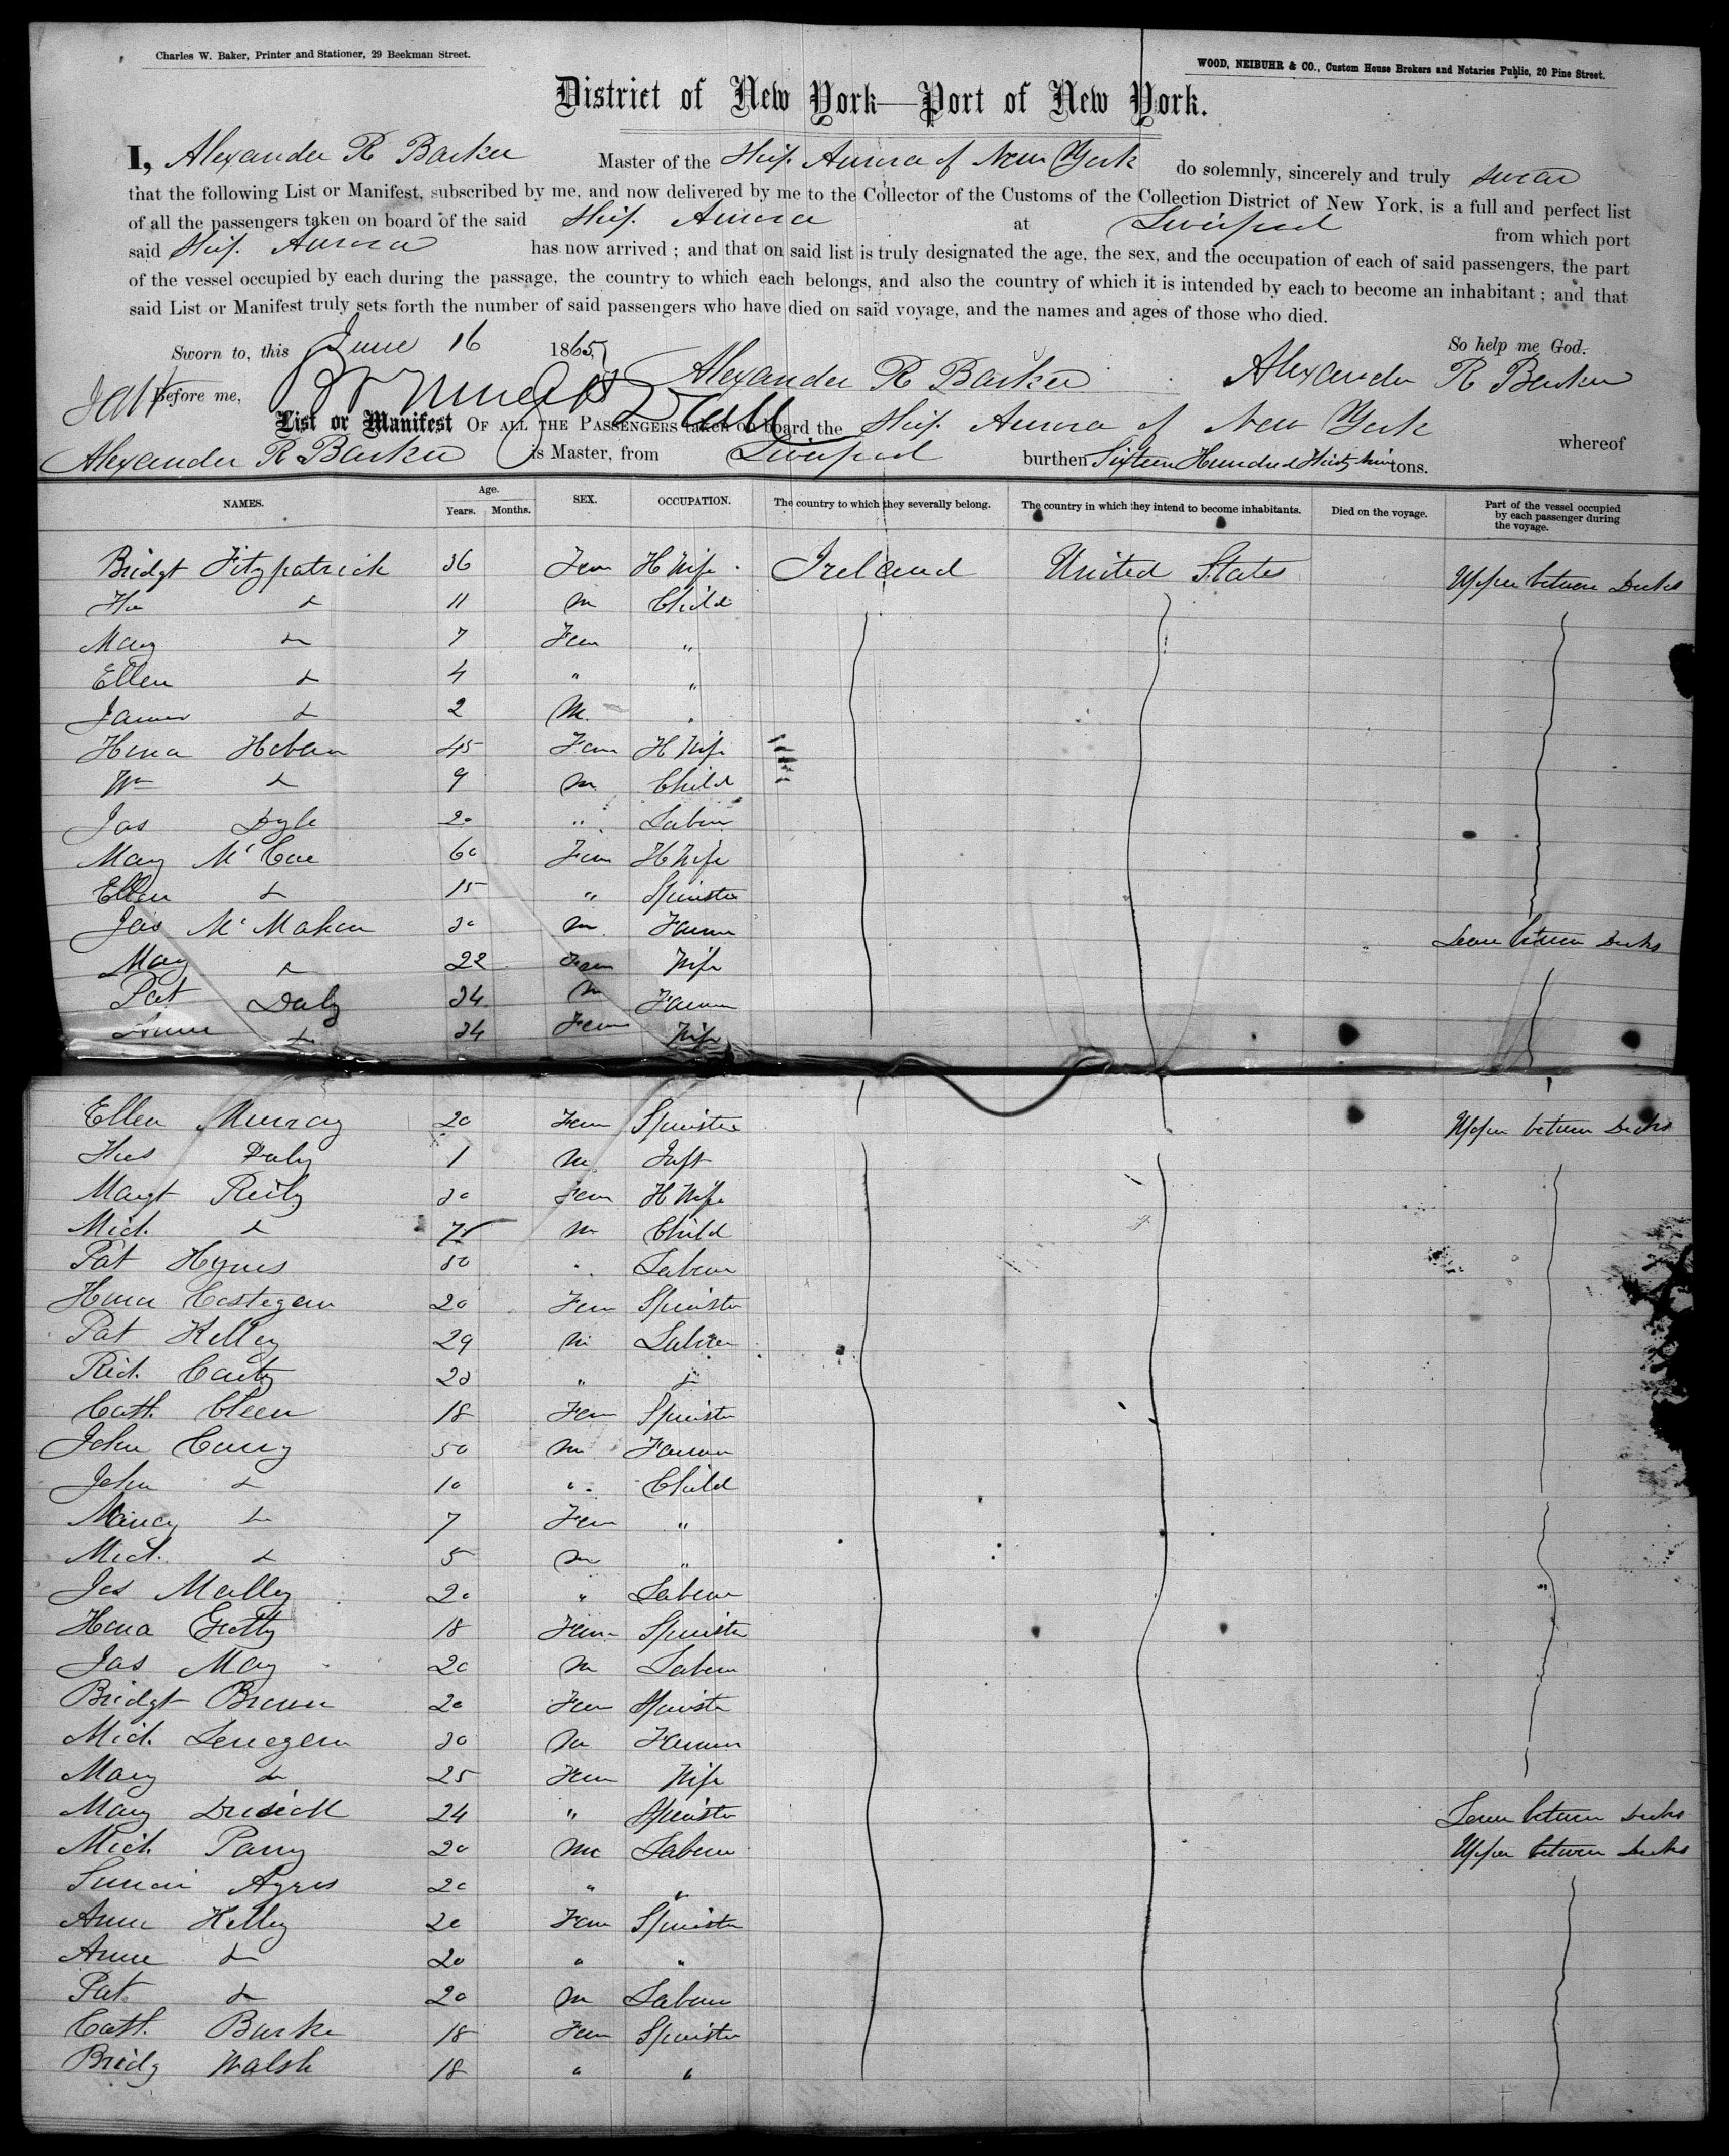 Charles W. Baker, Printer and Stationer, 29 Beekman Street.
WOOD, NEIBUHR & CO., Custom House Brokers and Notaries Public, 20 Pine Street.
District of New York—Port of New York.
I, Alexander R Barker Master of the Ship Aurora of New York do solemnly, sincerely and truly swear
that the following List or Manifest, subscribed by me, and now delivered by me to the Collector of the Customs of the Collection District of New York, is a full and perfect list
of all the passengers taken on board of the said Ship Aurora at Liverpool from which port
said Ship Aurora has now arrived ; and that on said list is truly designated the age, the sex, and the occupation of each of said passengers, the part
of the vessel occupied by each during the passage, the country to which each belongs, and also the country of which it is intended by each to become an inhabitant ; and that
said List or Manifest truly sets forth the number of said passengers who have died on said voyage, and the names and ages of those who died.
Sworn to, this June 16 1865, So help me God.
Before me, Alexander R Barker Alexander R Barker
List or Manifest OF ALL THE PASSENGERS taken on board the Ship Aurora of New York whereof
Alexander R Barker is Master, from Liverpool burthen Sixteen Hundred Thirty nine tons.
NAMES. Age. Years. Months. SEX. OCCUPATION. The country to which they severally belong. The country in which they intend to become inhabitants. Died on the voyage. Part of the vessel occupied by each passenger during the voyage.
Bridgt Fitzpatrick 36 Fem H Wife Ireland United States Upper between Decks
11 M Child
Mary 7 Fem "
Ellen 4 " "
James 2 M "
45 Fem H Wife
Wm 9 M Child
Jas 20 " Labour
Mary McCue 60 Fem H Wife
Ellen 15 " Spinster
Jas McMahon 30 M Farmer Lower between Decks
Mary 22 Fem Wife
Pat Daly 34 M Farmer
Anne 34 Fem Wife
Ellen Murray 20 Fem Spinster Upper between Decks
Daly 1 M Inft
Margt Reily 30 Fem H Wife
Mich. 7 M Child
Pat Hynes 50 " Labour
Costegan 20 Fem Spinster
Pat Kelley 29 M Labour
Rich. 23 "
Cath. 18 Fem Spinster
John 50 M Farmer
John 10 " Child
Nancy 7 Fem "
Mich. 5 M "
Jas Malley 20 " Labour
18 Fem Spinster
Jas May 20 M Labour
Bridgt Brown 20 Fem Spinster
Mich. 30 M Farmer
Mary 25 Fem Wife
Mary 24 " Spinster Lower between Decks
Mich. Parry 20 M Labour Upper between Decks
Ayres 20 " "
Anne Kelley 20 Fem Spinster
Anne 20 " "
Pat 20 M Labour
Cath. Burke 18 Fem Spinster
Bridg Walsh 18 " "